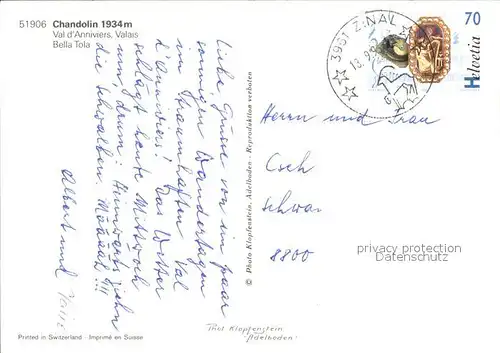 51906 Chandolin 1934 m
Val d'Anniviers, Valais
Bella Tola
3961 ZINAL
13.9.
70
Helvetia
Liebe Grüsse von ein paar
sonnigen Wandertagen
im traumhaften Val
d'Anniviers! Das Wetter
schlägt heute Mittwoch
um, drum: Heimwärts ziehn
die Schwalben.
Albert und
© Photo Klopfenstein, Adelboden - Reproduktion verboten
Herrn und Frau
8800
privacy protection
Datenschutz
Printed in Switzerland · Imprimé en Suisse
Phot Klopfenstein
Adelboden